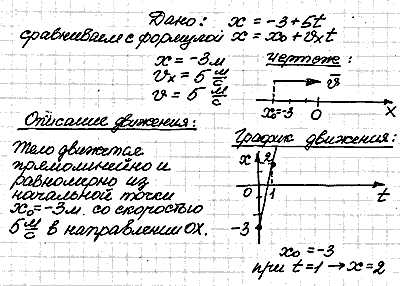 Дано: x = -3 + 5t
сравниваем с формулой x = x₀ + vₓt
x = -3 м
vₓ = 5 м/с
v = 5 м/с
чертеж:
v̄
x₀=-3 0 x
Описание движения:
Тело движется
прямолинейно и
равномерно из
начальной точки
x₀ = -3 м. со скоростью
5 м/с в направлении OX.
График движения:
x 2
0 1 t
-3
x₀ = -3
при t = 1 → x = 2